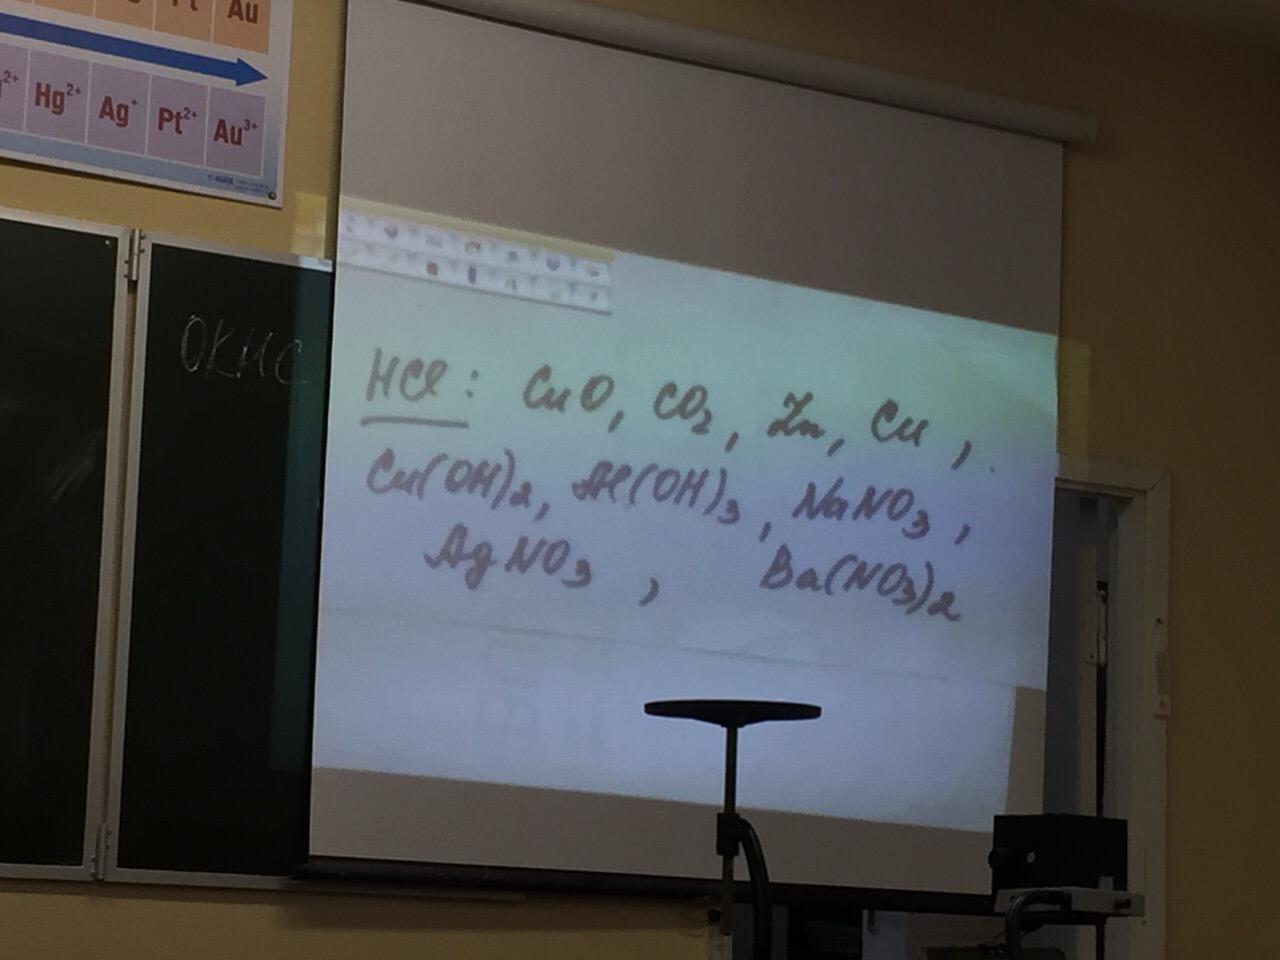 Au
Hg²⁺ Ag⁺ Pt²⁺ Au³⁺
ОКИС
HCl: CuO, CO₂, Zn, Cu,
Cu(OH)₂, Al(OH)₃, NaNO₃,
AgNO₃, Ba(NO₃)₂